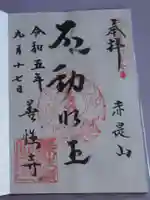 奉拝
赤是山
不動明王
令和五年
九月十七日
善照寺